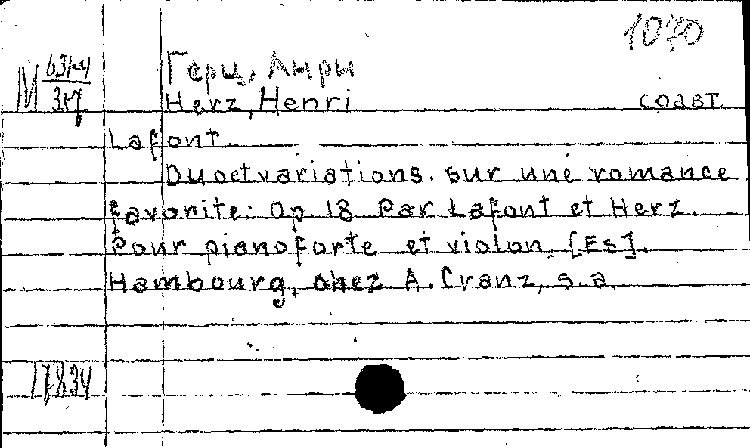 1070
М 63м/317
Герц, Анри
Herz, Henri соавт.
Lafont.
Duoetvariations. sur une romance
favorite: Op. 18 Par Lafont et Herz.
Pour pianoforte et violon, [Es].
Hambourg, chez A. Cranz, s.a.
17834